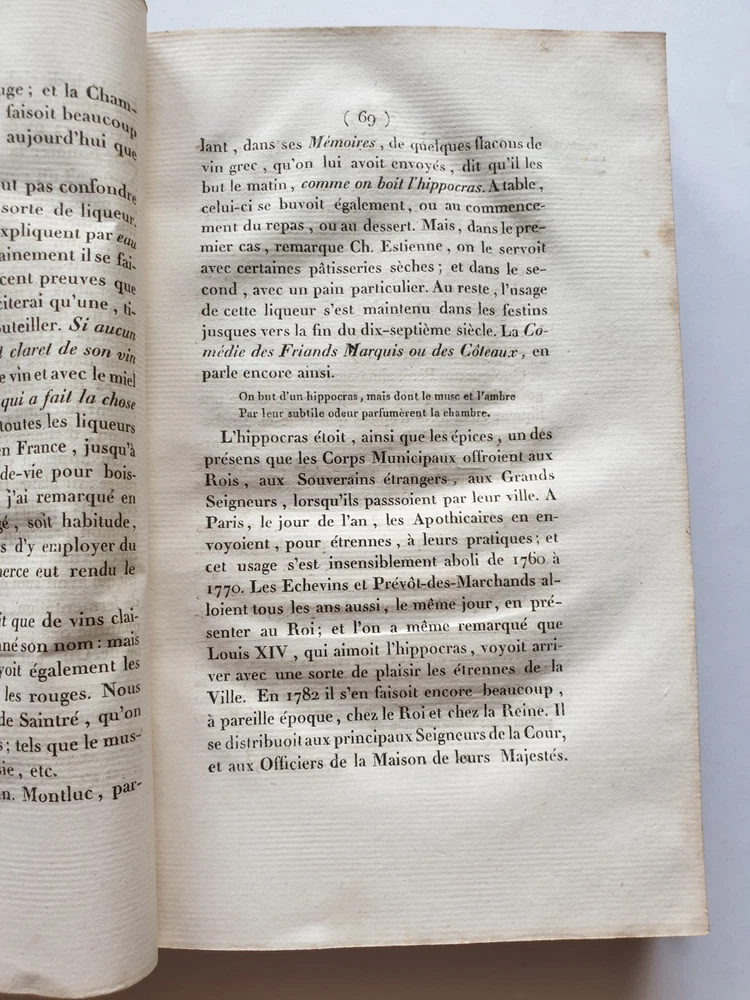 ige ; et la Cham-
faisoit beaucoup
aujourd'hui que
ut pas confondre
sorte de liqueur.
xpliquent par eau
ainement il se fai-
cent preuves que
citerai qu'une , ti-
outeiller. Si aucun
claret de son vin
e vin et avec le miel
qui a fait la chose
toutes les liqueurs
en France , jusqu'à
de-vie pour bois-
j'ai remarqué en
gé , soit habitude,
s d'y employer du
merce eut rendu le
it que de vins clai-
nné son nom : mais
voit également les
les rouges. Nous
de Saintré , qu'on
s ; tels que le mus-
sie , etc.
n. Montluc , par-
( 69 )
lant , dans ses Mémoires , de quelques flacons de
vin grec , qu'on lui avoit envoyés , dit qu'il les
but le matin , comme on boit l'hippocras. A table ,
celui-ci se buvoit également , ou au commence-
ment du repas , ou au dessert. Mais , dans le pre-
mier cas , remarque Ch. Estienne , on le servoit
avec certaines pâtisseries sèches ; et dans le se-
cond , avec un pain particulier. Au reste , l'usage
de cette liqueur s'est maintenu dans les festins
jusques vers la fin du dix-septième siècle. La Co-
médie des Friands Marquis ou des Côteaux , en
parle encore ainsi.
On but d'un hippocras , mais dont le musc et l'ambre
Par leur subtile odeur parfumèrent la chambre.
L'hippocras étoit , ainsi que les épices , un des
présens que les Corps Municipaux offroient aux
Rois , aux Souverains étrangers , aux Grands
Seigneurs , lorsqu'ils passsoient par leur ville. A
Paris , le jour de l'an , les Apothicaires en en-
voyoient , pour étrennes , à leurs pratiques ; et
cet usage s'est insensiblement aboli de 1760 à
1770. Les Echevins et Prévôt-des-Marchands al-
loient tous les ans aussi , le même jour , en pré-
senter au Roi ; et l'on a même remarqué que
Louis XIV , qui aimoit l'hippocras , voyoit arri-
ver avec une sorte de plaisir les étrennes de la
Ville. En 1782 il s'en faisoit encore beaucoup ,
à pareille époque , chez le Roi et chez la Reine. Il
se distribuoit aux principaux Seigneurs de la Cour,
et aux Officiers de la Maison de leurs Majestés.